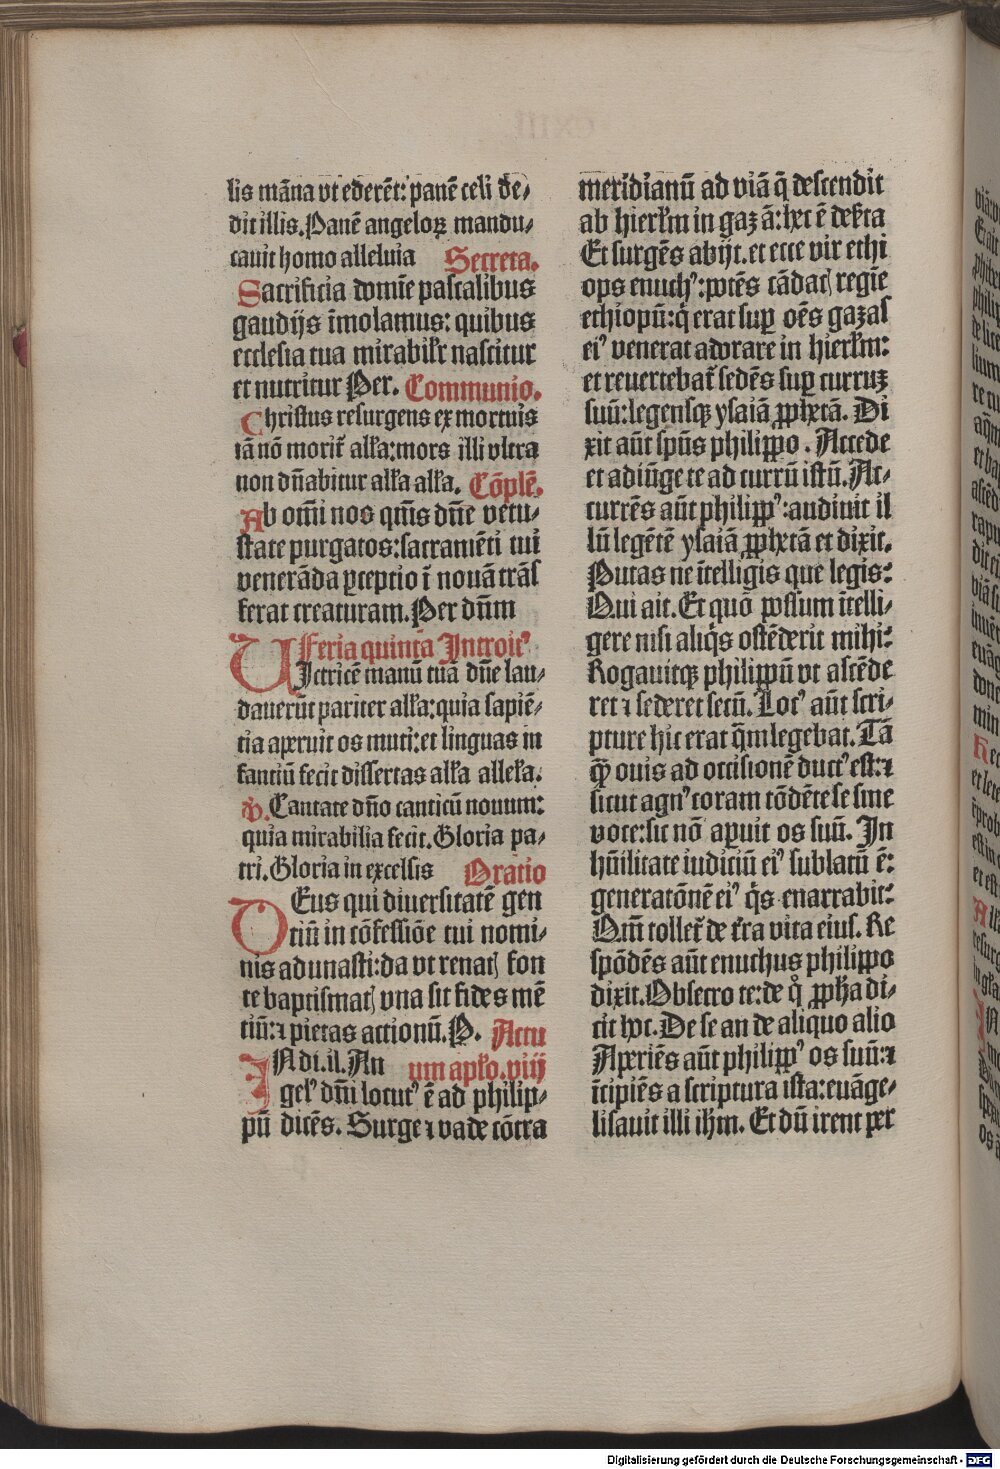 lis māna vt ederēt: panē celi de⸗
dit illis. Panē angeloꝝ mandu⸗
cauit homo alleluia Secreta.
Sacrificia domīe pascalibus
gaudijs īmolamus: quibus
ecclesia tua mirabilr̄ nascitur
et nutritur Per. Communio.
Christus resurgens ex mortuis
iā nō morit᷑ alla: mors illi vltra
non dn̄abitur alla alla. Cōplē.
Ab om̄i nos qm̄s dn̄e vetu⸗
state purgatos: sacramēti tui
venerāda ꝑceptio ī nouā trās
ferat creaturam. Per dn̄m
Feria quinta Introitꝰ
VJctricē manū tuā dn̄e lau⸗
dauerūt pariter alla: quia sapiē⸗
tia aperuit os muti: et linguas in
fantiū fecit dissertas alla allela.
℣. Cantate dn̄o canticū nouum:
quia mirabilia fecit. Gloria pa⸗
tri. Gloria in excelsis Oratio
DEus qui diuersitatē gen
tiū in cōfessiōe tui nomi⸗
nis adunasti: da vt renatꝭ fon
te baptismatꝭ vna sit fides mē
tiū: ⁊ pietas actionū. P. Actu
IN di. il. An um aplo. viij
gelꝰ dn̄i locutꝰ ē ad philip⸗
pū dicēs. Surge ⁊ vade cōtra
meridianū ad viā q̄ descendit
ab hierlm in gazā: hec ē deserta
Et surgēs abijt. et ecce vir ethi
ops enuchꝰ: potēs cādacꝭ regīe
ethiopū: q̇ erat suꝑ oēs gazas
eiꝰ venerat adorare in hierlm:
et reuertebat᷑ sedēs suꝑ curruꝫ
suū: legensqꝫ ysaiā ꝓphetā. Di
xit aūt spūs philippo. Accede
et adiūge te ad currū istū. Ac⸗
currēs aūt philippꝰ: audiuit il
lū legētē ysaiā ꝓphetā et dixit.
Putas ne ītelligis que legis:
Qui ait. Et quō possum ītelli⸗
gere nisi aliq̇s ostēderit mihi:
Rogauitqꝫ philippū vt ascēde
ret ⁊ sederet secū. Locꝰ aūt scri⸗
pture hic erat q̄m legebat. Tā
ꝙ̄ ouis ad occisionē ductꝰ est: ⁊
sicut agnꝰ coram tōdēte se sine
voce: sic nō aperuit os suū. In
hūilitate iudiciū eiꝰ sublatū ē:
generatōnē eiꝰ q̇s enarrabit:
Qm̄ tollet᷑ de t̄ra vita eius. Re
spōdēs aūt enuchus philippo
dixit. Obsecro te: de q̊ ꝓpha di⸗
cit hoc. De se an de aliquo alio
Aperiēs aūt philippꝰ os suū: ⁊
īcipiēs a scriptura ista: euāge⸗
lisauit illi ihm. Et dū irent per
Digitalisierung gefördert durch die Deutsche Forschungsgemeinschaft - DFG